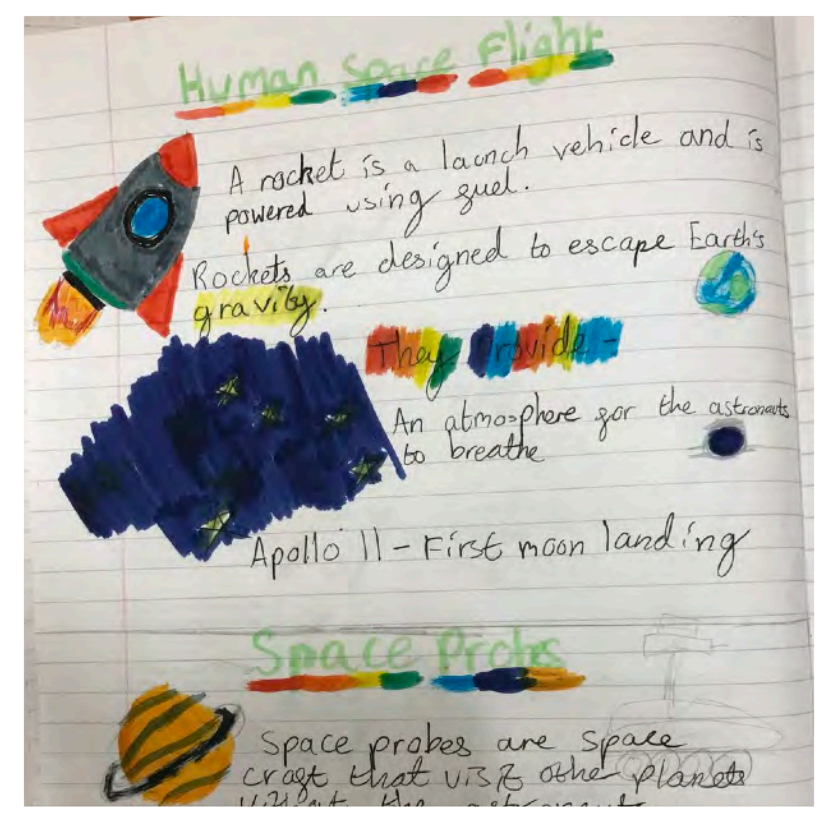 Human Space Flight
A rocket is a launch vehicle and is
powered using fuel.
Rockets are designed to escape Earth's
gravity.
They Provide -
An atmosphere for the astronauts
to breathe
Apollo 11 - First moon landing
Space Probs
Space probes are space
craft that visit other planets
without the astronauts